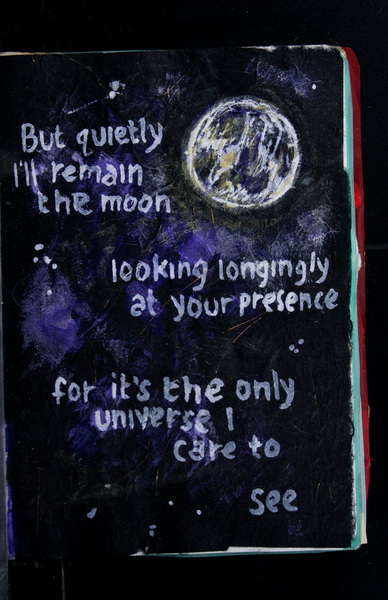 But quietly
I'll remain
the moon
looking longingly
at your presence
for it's the only
universe I
care to
see